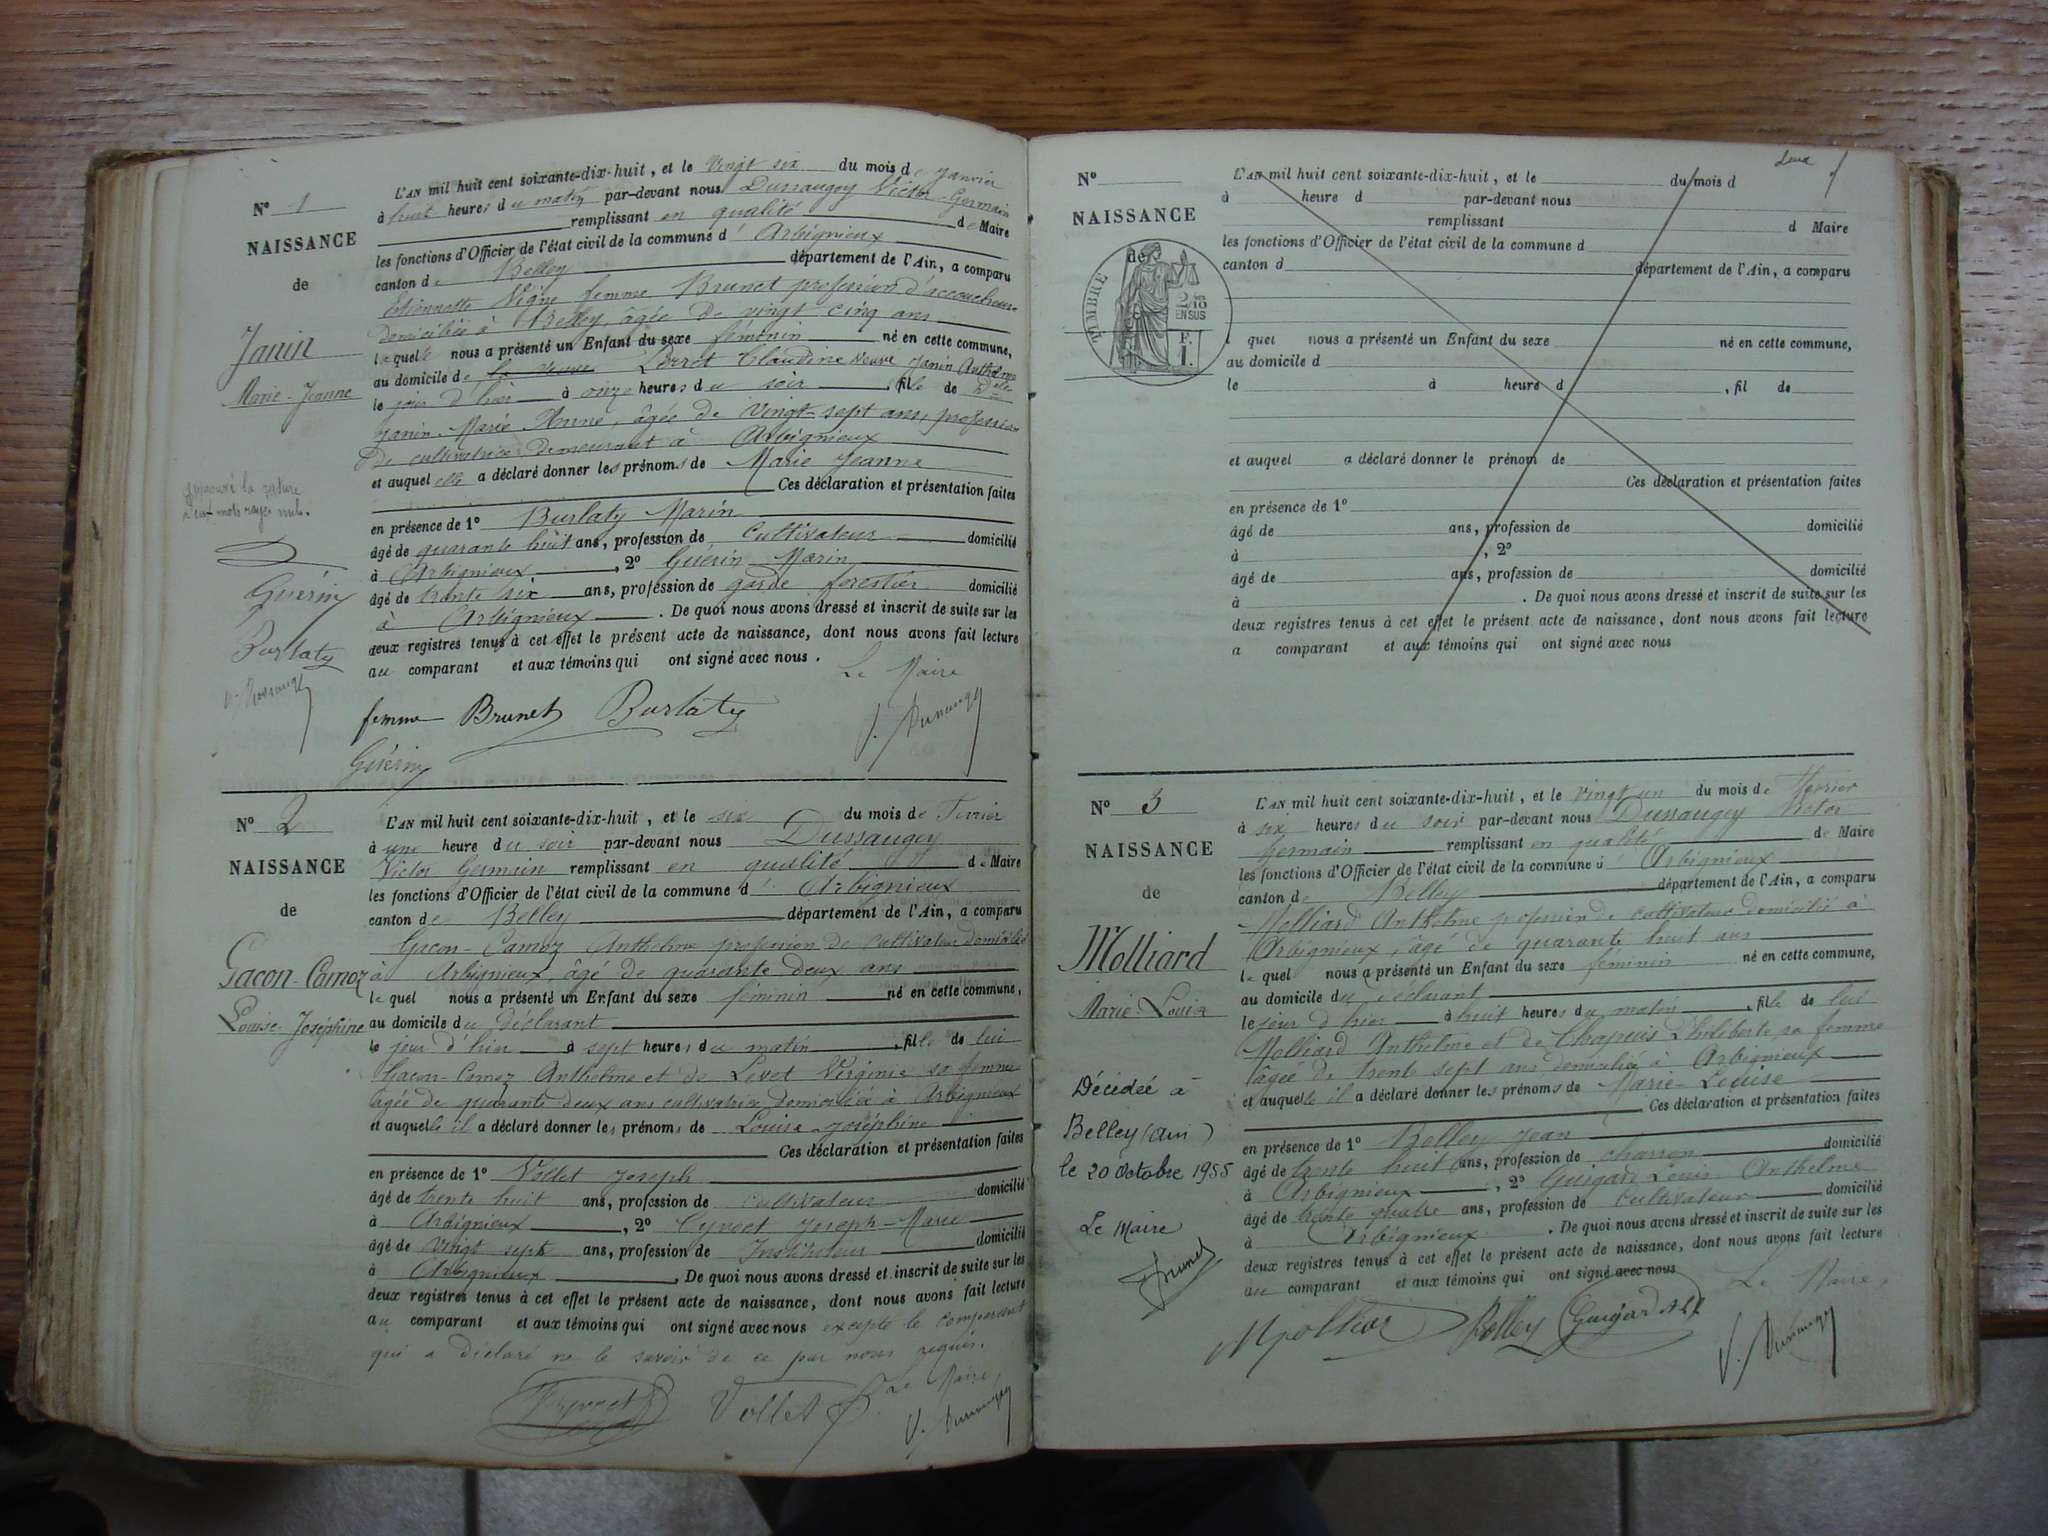 N° 1
NAISSANCE
de
Janin
Marie-Jeanne
approuvé la rature
deux mots rayés nuls.
Guérin
Burlaty
V. Dussaugey
L'AN mil huit cent soixante-dix-huit, et le vingt six du mois de Janvier
à huit heures du matin par-devant nous Dussaugey Victor-Germain
remplissant en qualité de Maire
les fonctions d'Officier de l'état civil de la commune d'Arbignieux
canton de Belley département de l'Ain, a comparu
Etiennette Vigne femme Brunet profession d'accoucheuse
domiciliée à Belley, âgée de vingt cinq ans
laquelle nous a présenté un Enfant du sexe féminin né en cette commune,
au domicile de la veuve Lorret Claudine veuve Janin Anthelme
le jour d'hier à onze heures du soir, fille de Delle
Janin Marie Anne, âgée de vingt-sept ans, profession
de cultivatrice demeurant à Arbignieux
et auquel elle a déclaré donner les prénoms de Marie Jeanne
Ces déclaration et présentation faites
en présence de 1° Burlaty Marin
âgé de quarante huit ans, profession de cultivateur domicilié
à Arbignieux, 2° Guérin Marin
âgé de trente six ans, profession de garde forestier domicilié
à Arbignieux. De quoi nous avons dressé et inscrit de suite sur les
deux registres tenus à cet effet le présent acte de naissance, dont nous avons fait lecture
au comparant et aux témoins qui ont signé avec nous.
Le Maire
femme Brunet Burlaty V. Dussaugey
Guérin
N° 2
NAISSANCE
de
Gacon-Camoz
Louise-Joséphine
L'AN mil huit cent soixante-dix-huit, et le six du mois de Février
à une heure du soir par-devant nous Dussaugey
Victor Germain remplissant en qualité de Maire
les fonctions d'Officier de l'état civil de la commune d'Arbignieux
canton de Belley département de l'Ain, a comparu
Gacon-Camoz Anthelme profession de cultivateur domicilié
à Arbignieux, âgé de quarante deux ans
lequel nous a présenté un Enfant du sexe féminin né en cette commune,
au domicile du déclarant
le jour d'hier à sept heures du matin, fille de lui
Gacon-Camoz Anthelme et de Levet Virginie sa femme
âgée de quarante deux ans cultivatrice domiciliée à Arbignieux
et auquelle il a déclaré donner les prénoms de Louise-Joséphine
Ces déclaration et présentation faites
en présence de 1° Vollet Joseph
âgé de trente huit ans, profession de cultivateur domicilié
à Arbignieux, 2° Cyvoct Joseph-Marie
âgé de vingt sept ans, profession de Instituteur domicilié
à Arbignieux. De quoi nous avons dressé et inscrit de suite sur les
deux registres tenus à cet effet le présent acte de naissance, dont nous avons fait lecture
au comparant et aux témoins qui ont signé avec nous excepté le comparant
qui a déclaré ne le savoir de ce par nous requis.
Le Maire,
Cyvoct Vollet J. V. Dussaugey
deux
N°
NAISSANCE
de
TIMBRE
2/10 EN SUS
F.
1.
L'AN mil huit cent soixante-dix-huit, et le du mois d
à heure d par-devant nous
remplissant d Maire
les fonctions d'Officier de l'état civil de la commune d
canton d département de l'Ain, a comparu
l quel nous a présenté un Enfant du sexe né en cette commune,
au domicile d
le à heure d, fil de
et auquel a déclaré donner le prénom de
Ces déclaration et présentation faites
en présence de 1°
âgé de ans, profession de domicilié
à, 2°
âgé de ans, profession de domicilié
à. De quoi nous avons dressé et inscrit de suite sur les
deux registres tenus à cet effet le présent acte de naissance, dont nous avons fait lecture
a comparant et aux témoins qui ont signé avec nous
N° 3
NAISSANCE
de
Molliard
Marie-Louise
Décédée à
Belley (Ain)
le 20 octobre 1955
Le Maire
L'AN mil huit cent soixante-dix-huit, et le vingt un du mois de Février
à six heures du soir par-devant nous Dussaugey Victor
Germain remplissant en qualité de Maire
les fonctions d'Officier de l'état civil de la commune d'Arbignieux
canton de Belley département de l'Ain, a comparu
Molliard Anthelme profession de cultivateur domicilié à
Arbignieux, âgé de quarante huit ans
lequel nous a présenté un Enfant du sexe féminin né en cette commune,
au domicile du déclarant
le jour d'hier à huit heures du matin, fille de lui
Molliard Anthelme et de Chapuis Philiberte sa femme
âgée de trente sept ans domiciliée à Arbignieux
et auquelle il a déclaré donner les prénoms de Marie-Louise
Ces déclaration et présentation faites
en présence de 1° Belley Jean
âgé de trente huit ans, profession de charron domicilié
à Arbignieux, 2° Guigard Louis Anthelme
âgé de trente quatre ans, profession de cultivateur domicilié
à Arbignieux. De quoi nous avons dressé et inscrit de suite sur les
deux registres tenus à cet effet le présent acte de naissance, dont nous avons fait lecture
au comparant et aux témoins qui ont signé avec nous
Le Maire,
Molliar Belley Guigard V. Dussaugey